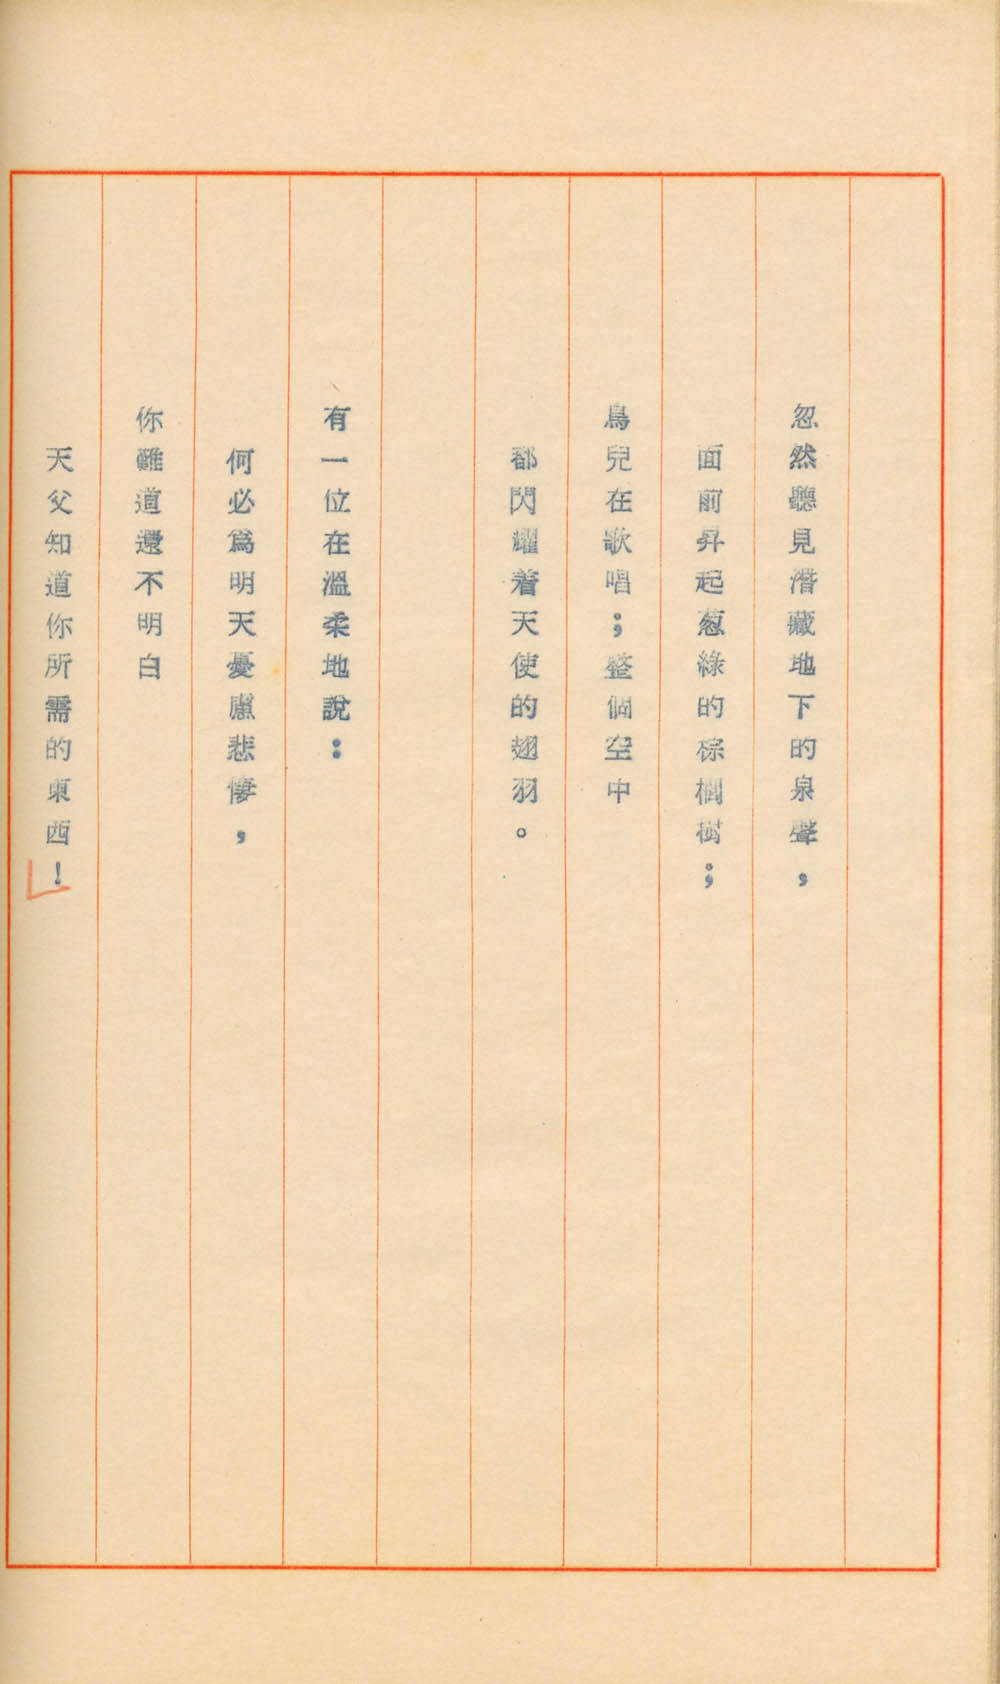 忽然聽見潛藏地下的泉聲，
面前昇起葱綠的棕櫚樹；
鳥兒在歌唱；整個空中
都閃耀着天使的翅羽。
有一位在溫柔地說：
何必爲明天憂慮悲悽，
你難道還不明白
天父知道你所需的東西！